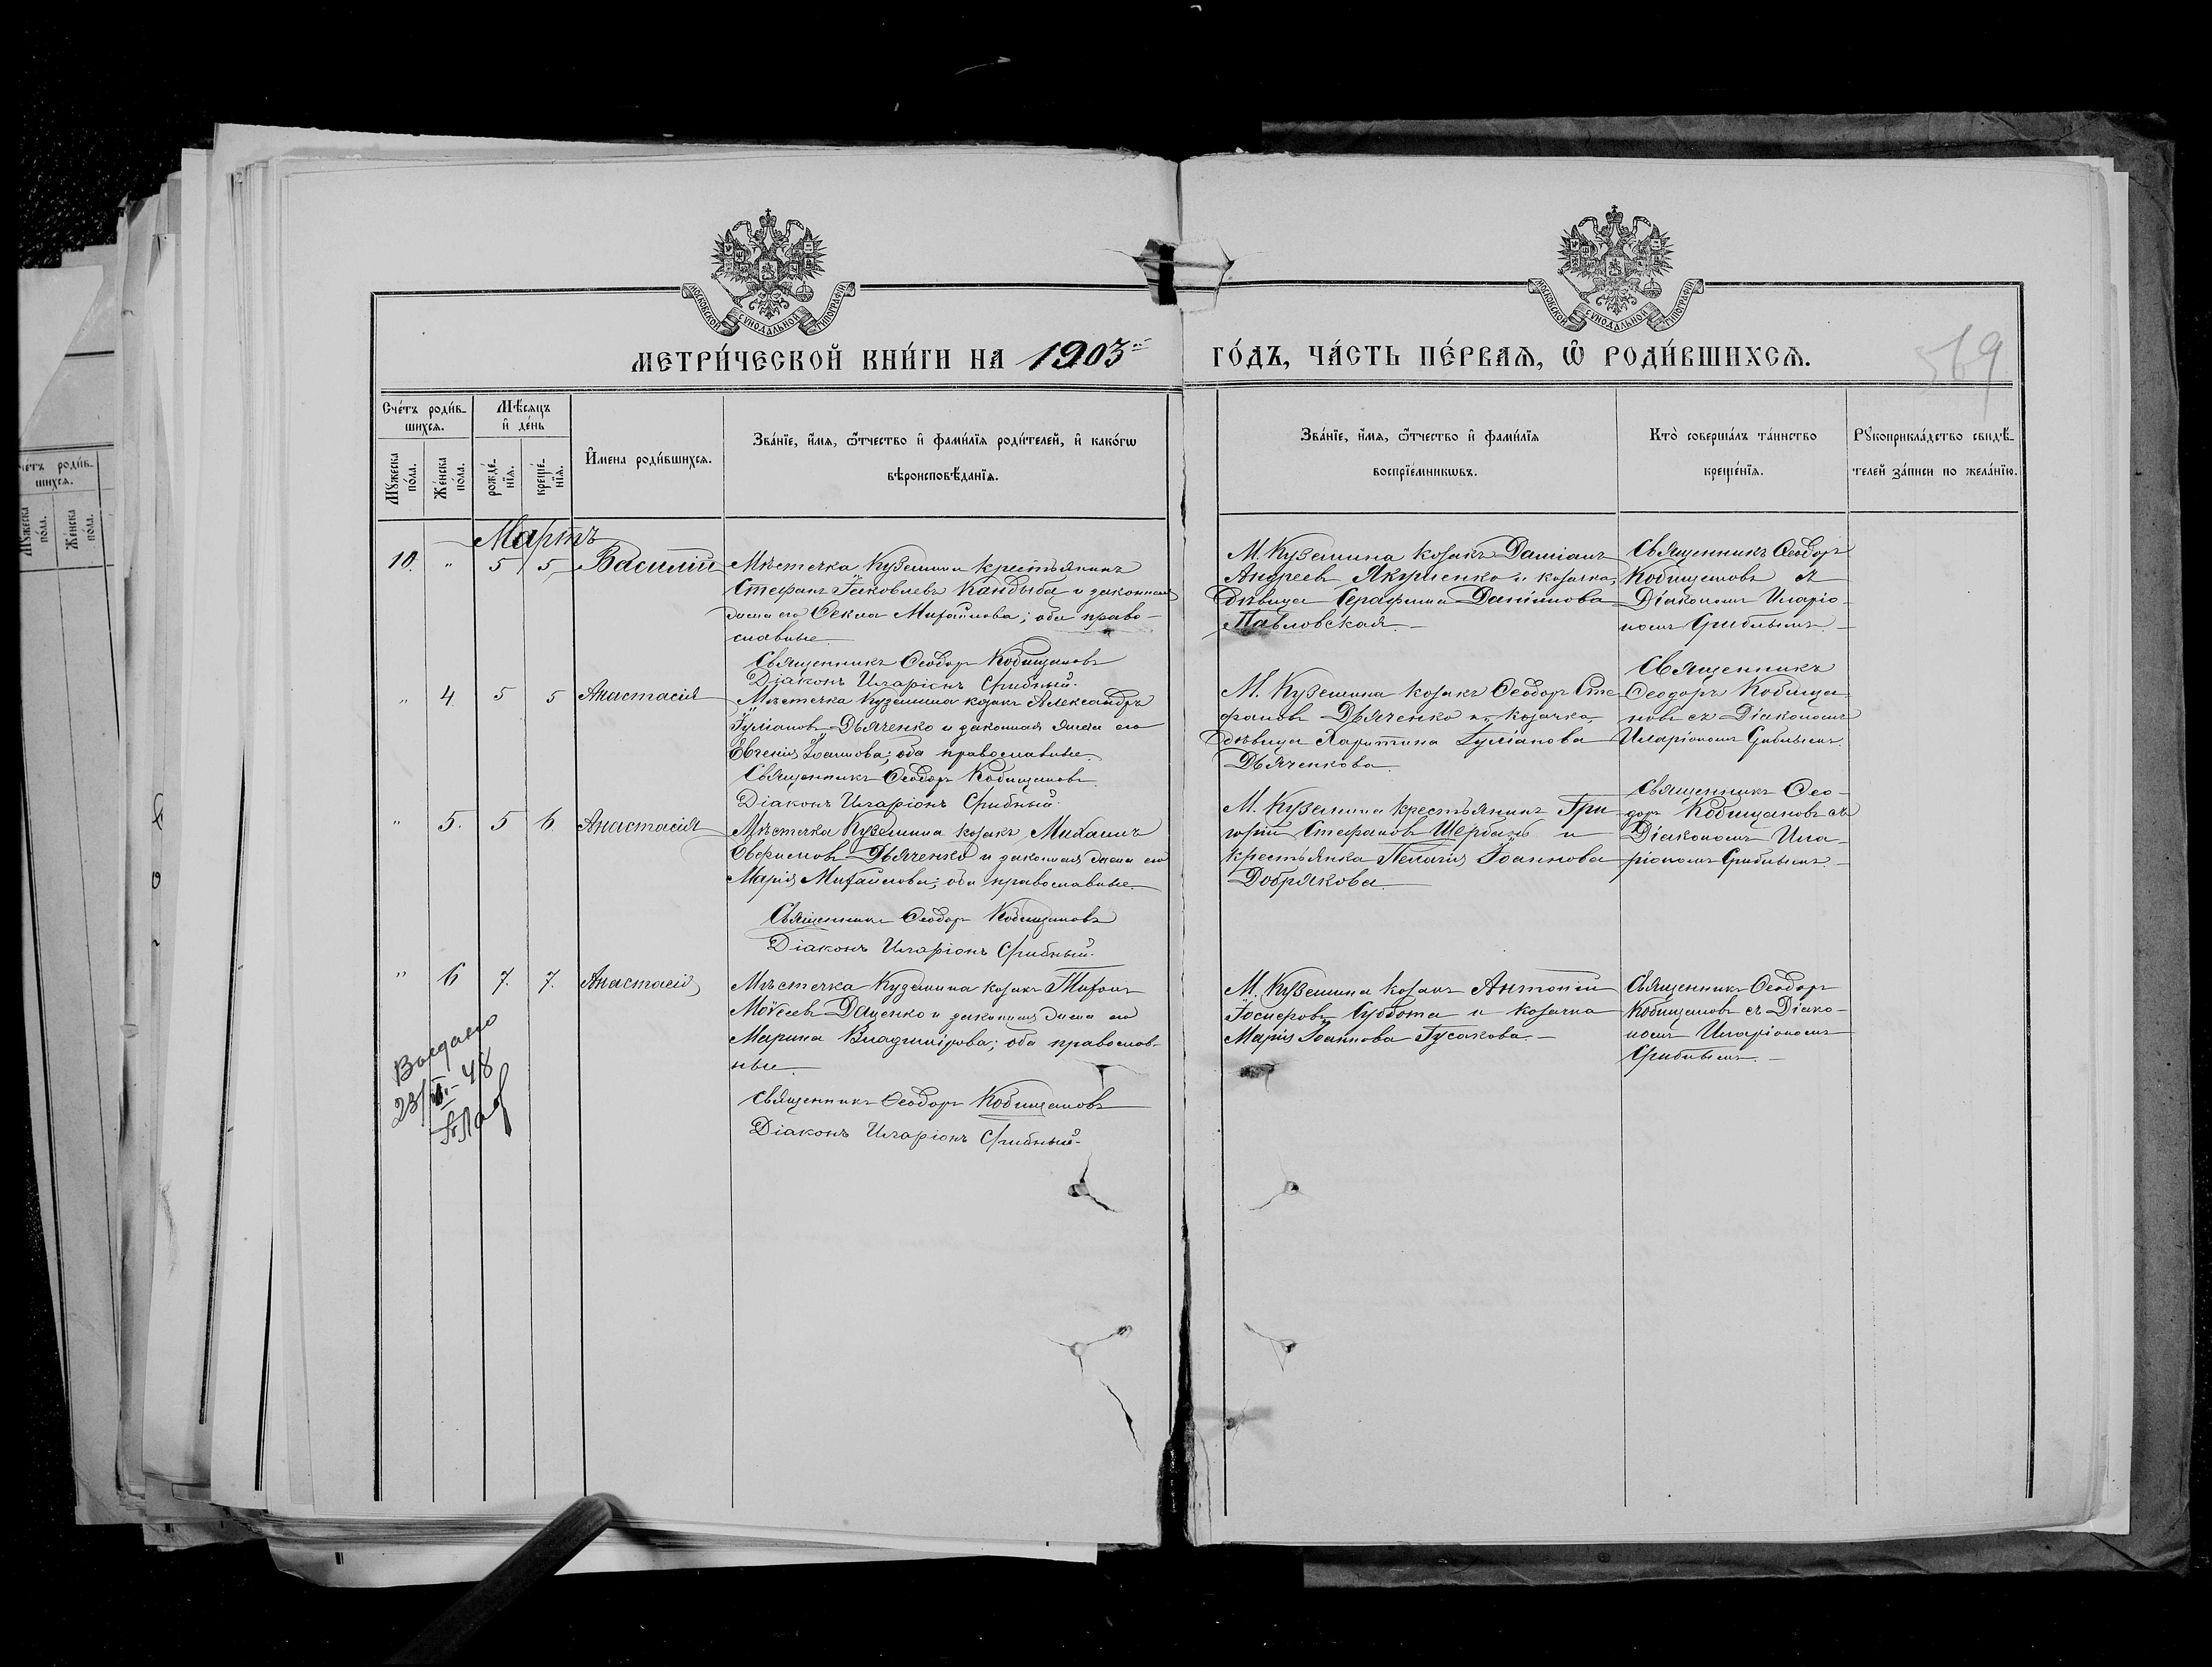 МОСКОВСКОЙ СУНОДАЛЬНОЙ ТИПОГРАФІИ
МОСКОВСКОЙ СУНОДАЛЬНОЙ ТИПОГРАФІИ
МЕТРИ́ЧЕСКОЙ КНИ́ГИ НА 1903й
ГО́ДЪ, ЧА́СТЬ ПЕ́РВАѦ, Ѡ РОДИ́ВШИХСѦ.
569
Сче́тъ роди́в-
шихсѧ.
Мѣ́сѧцъ
и де́нь
Мꙋ́жеска
по́ла.
Же́нска
по́ла.
рожде́-
нїѧ.
креще́-
нїѧ.
И҆мена роди́вшихсѧ.
Зва́нїе, и҆́мѧ, ѻ҆́тчество и҆ фами́лїѧ роди́телей, и҆ како́гѡ
вѣроисповѣ́данїѧ.
Зва́нїе, и҆́мѧ, ѻ҆́тчество и҆ фами́лїѧ
воспрїе́мникѡвъ.
Кто̀ соверша́лъ та́инство
креще́нїѧ.
Рꙋкоприкла́дство свидѣ́-
телей за́писи по жела́нїю.
Мартъ
10. " 5 5 Василій
Мѣстечка Куземина крестьянинъ
Стефанъ Іаковлевъ Кандыба и законная
жена его Ѳекла Михаилова; оба право-
славные
Священникъ Ѳеодоръ Кобищановъ
Діаконъ Иларіонъ Срибный.
М. Куземина козакъ Даміанъ
Андреевъ Якименко и козачка,
дѣвица Серафима Даніилова
Павловская.
Священникъ Ѳеодоръ
Кобищановъ съ
Діакономъ Иларіо-
номъ Срибнымъ.
" 4 5 5 Анастасія
Мѣстечка Куземина козакъ Александръ
Іуліановъ Дьяченко и законная жена его
Евгенія Іоаннова; оба православные.
Священникъ Ѳеодоръ Кобищановъ
Діаконъ Иларіонъ Срибный.
М. Куземина козакъ Ѳеодоръ Сте-
фановъ Дьяченко и козачка,
дѣвица Харитина Іуліанова
Дьяченкова.
Священникъ
Ѳеодоръ Кобища-
новъ съ Діакономъ
Иларіономъ Срибнымъ.
" 5. 5 6 Анастасія
Мѣстечка Куземина козакъ Михаилъ
Евфимовъ Дьяченко и законная жена его
Марія Михаилова; оба православные.
Священникъ Ѳеодоръ Кобищановъ
Діаконъ Иларіонъ Срибный.
М. Куземина крестьянинъ Гри-
горій Стефановъ Щербань и
крестьянка Пелагія Іоаннова
Добрякова.
Священникъ Ѳео-
доръ Кобищановъ съ
Діакономъ Ила-
ріономъ Срибнымъ.
" 6 7. 7. Анастасія
Мѣстечка Куземина козакъ Тихонъ
Моѵсеевъ Даценко и законная жена его
Марина Владимірова; оба православ-
ные
Священникъ Ѳеодоръ Кобищановъ
Діаконъ Иларіонъ Срибный.
М. Куземина козакъ Антоній
Іосифовъ Субота и козачка
Марія Іоаннова Гусакова.
Священникъ Ѳеодоръ
Кобищановъ съ Діако-
номъ Иларіономъ
Срибнымъ.
Выдано